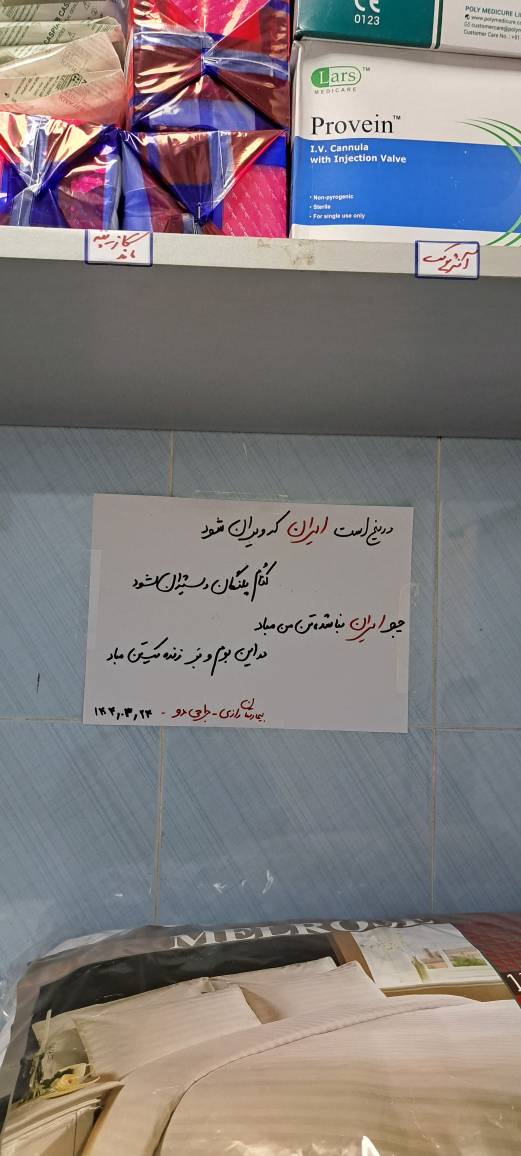 CE
0123
POLY MEDICURE L
Customer Care No.: +91
Lars™
MEDICARE
Provein™
I.V. Cannula
with Injection Valve
• Non-pyrogenic
• Sterile
• For single use only
گاز رینه
باند
آنژیوکت
دریغ است ایران که ویران شود
کنام پلنگان و شیران شود
چو ایران نباشد تن من مباد
در این بوم و بر زنده یک تن مباد
بیمارستان رازی - جراحی دو - ۱۴۰۴,۰۳,۲۴
MELROSE